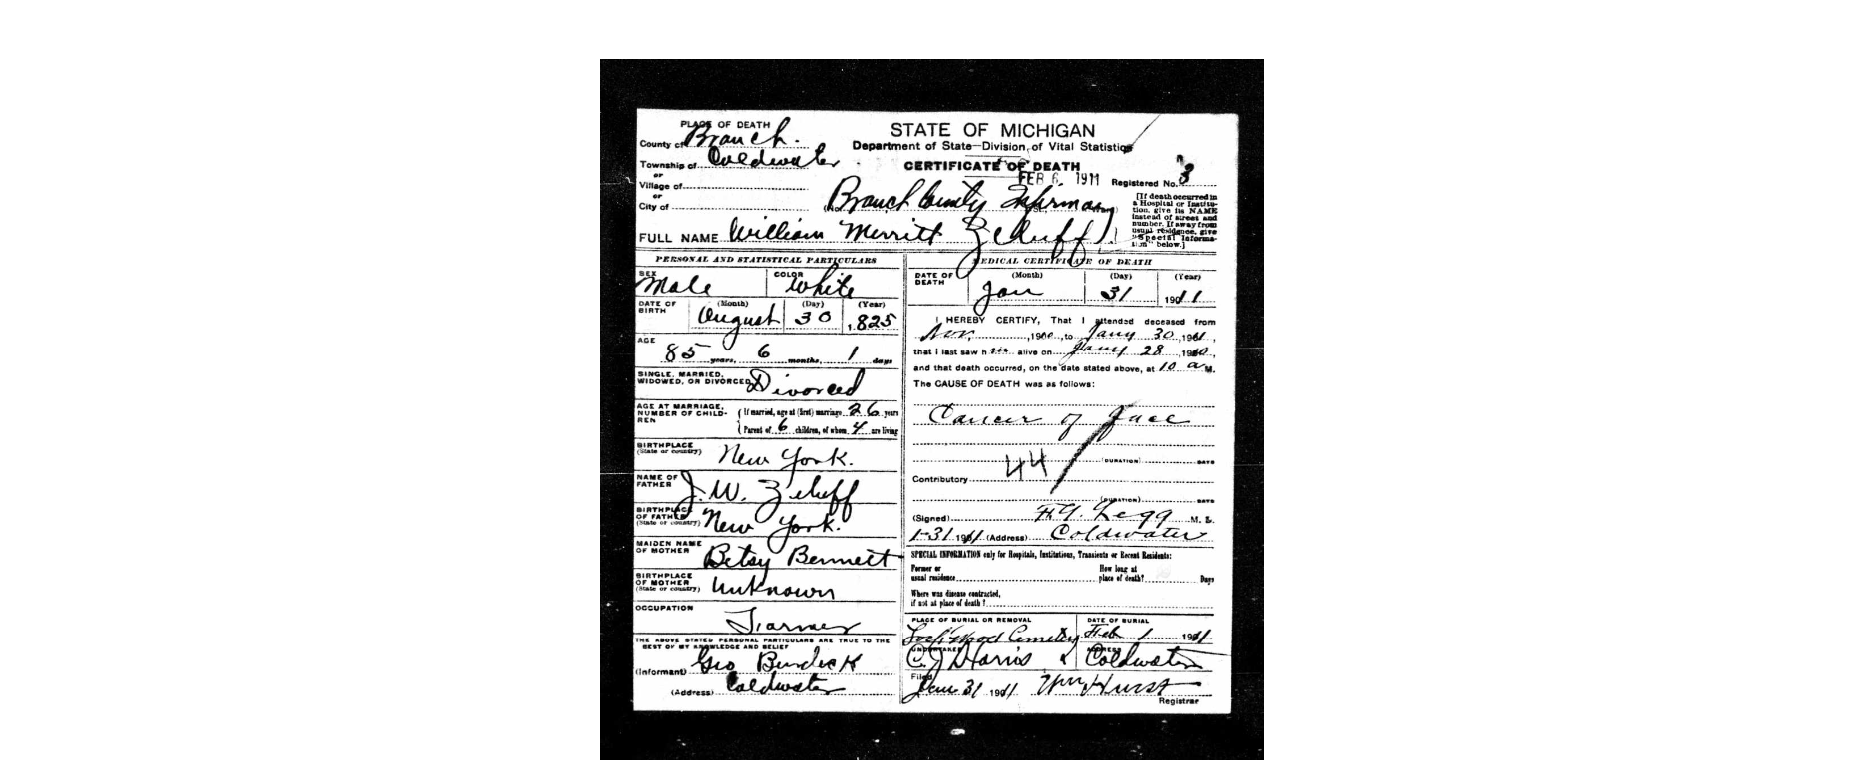 PLACE OF DEATH
County of Branch.
Township of Coldwater
or
Village of
or
City of
STATE OF MICHIGAN
Department of State—Division of Vital Statistics
CERTIFICATE OF DEATH
FEB 6 1911
Registered No. 3
(No. Branch County Infirmary
[If death occurred in
a Hospital or Institu-
tion, give its NAME
instead of street and
number. If away from
usual residence, give
"Special Informa-
tion" below.]
FULL NAME William Merritt Zeluff
PERSONAL AND STATISTICAL PARTICULARS
SEX
Male
COLOR
White
DATE OF
BIRTH
(Month) (Day) (Year)
August 30 1825
AGE
85 years, 6 months, 1 days
SINGLE, MARRIED,
WIDOWED, OR DIVORCED Divorced
AGE AT MARRIAGE,
NUMBER OF CHILD-
REN
(If married, age at (first) marriage 26 years
(Parent of 6 children, of whom 4 are living
BIRTHPLACE
(State or country) New York.
NAME OF
FATHER J. W. Zeluff
BIRTHPLACE
OF FATHER
(State or country) New York.
MAIDEN NAME
OF MOTHER Betsy Bennett
BIRTHPLACE
OF MOTHER
(State or country) Unknown
OCCUPATION
Farmer
THE ABOVE STATED PERSONAL PARTICULARS ARE TRUE TO THE
BEST OF MY KNOWLEDGE AND BELIEF
(Informant) Geo Burdick
(Address) Coldwater
MEDICAL CERTIFICATE OF DEATH
DATE OF
DEATH
(Month) (Day) (Year)
Jan 31 1911
I HEREBY CERTIFY, That I attended deceased from
Nov, 1910, to Jany 30, 1911,
that I last saw him alive on Jany 28, 1910,
and that death occurred, on the date stated above, at 10 a M.
The CAUSE OF DEATH was as follows:
Cancer of face
44
(DURATION) DAYS
Contributory
(DURATION) DAYS
(Signed) F. G. Legg M. D.
1-31 1911 (Address) Coldwater
SPECIAL INFORMATION only for Hospitals, Institutions, Transients or Recent Residents:
Former or
usual residence
How long at
place of death? Days
Where was disease contracted,
if not at place of death?
PLACE OF BURIAL OR REMOVAL
Lockwood Cemetery
DATE OF BURIAL
Feb 1 1911
UNDERTAKER
C. J. Harris
ADDRESS
Coldwater
Filed
Jan 31 1911 Wm Hurst
Registrar